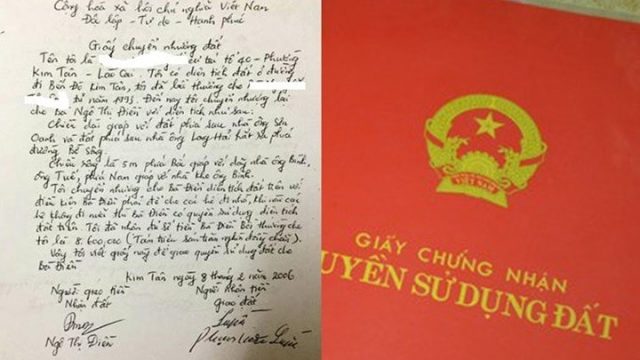 Cộng hòa xã hội chủ nghĩa Việt Nam
Độc lập - Tự do - Hạnh phúc
Giấy chuyển nhượng đất
Tên tôi là cư trú tổ 40 - Phường
Kim Tân - Lào Cai. Tôi có diện tích đất ở đường
đi Bến Đá Kim Tân, tôi đã bồi thường cho
từ năm 1993. Đến nay tôi chuyển nhượng lại
cho bà Ngô Thị Điền với diện tích như sau.
Chiều dài giáp với đất phía sau nhà ông Sửu
Oanh và đất phía sau nhà ông Long Hà hắt ra phía
đường Bờ sông.
Chiều rộng là 5m phía Bắc giáp với dãy nhà ông Bình,
ông Tuế, phía Nam giáp với nhà kho ông Bình.
Tôi chuyển nhượng cho Bà Điền diện tích đất trên với
điều kiện Bà Điền phải để cho cái hệ đi nhờ, khi nào cái
hệ không đi nữa thì bà Điền có quyền sử dụng diện tích
đất trên. Tôi đã nhận đủ số tiền Bà Điền Bồi thường cho
tôi là 8.600.000 (Tám triệu sáu trăm nghìn đồng chẵn).
Vậy tôi viết giấy này để giao quyền sử dụng đất cho
Bà Điền
Kim Tân ngày 8 tháng 2 năm 2006
Người giao tiền Người nhận tiền
Nhận đất giao đất
Luyến
Ngô Thị Điền
VIỆT NAM
GIẤY CHỨNG NHẬN
UYỀN SỬ DỤNG ĐẤT